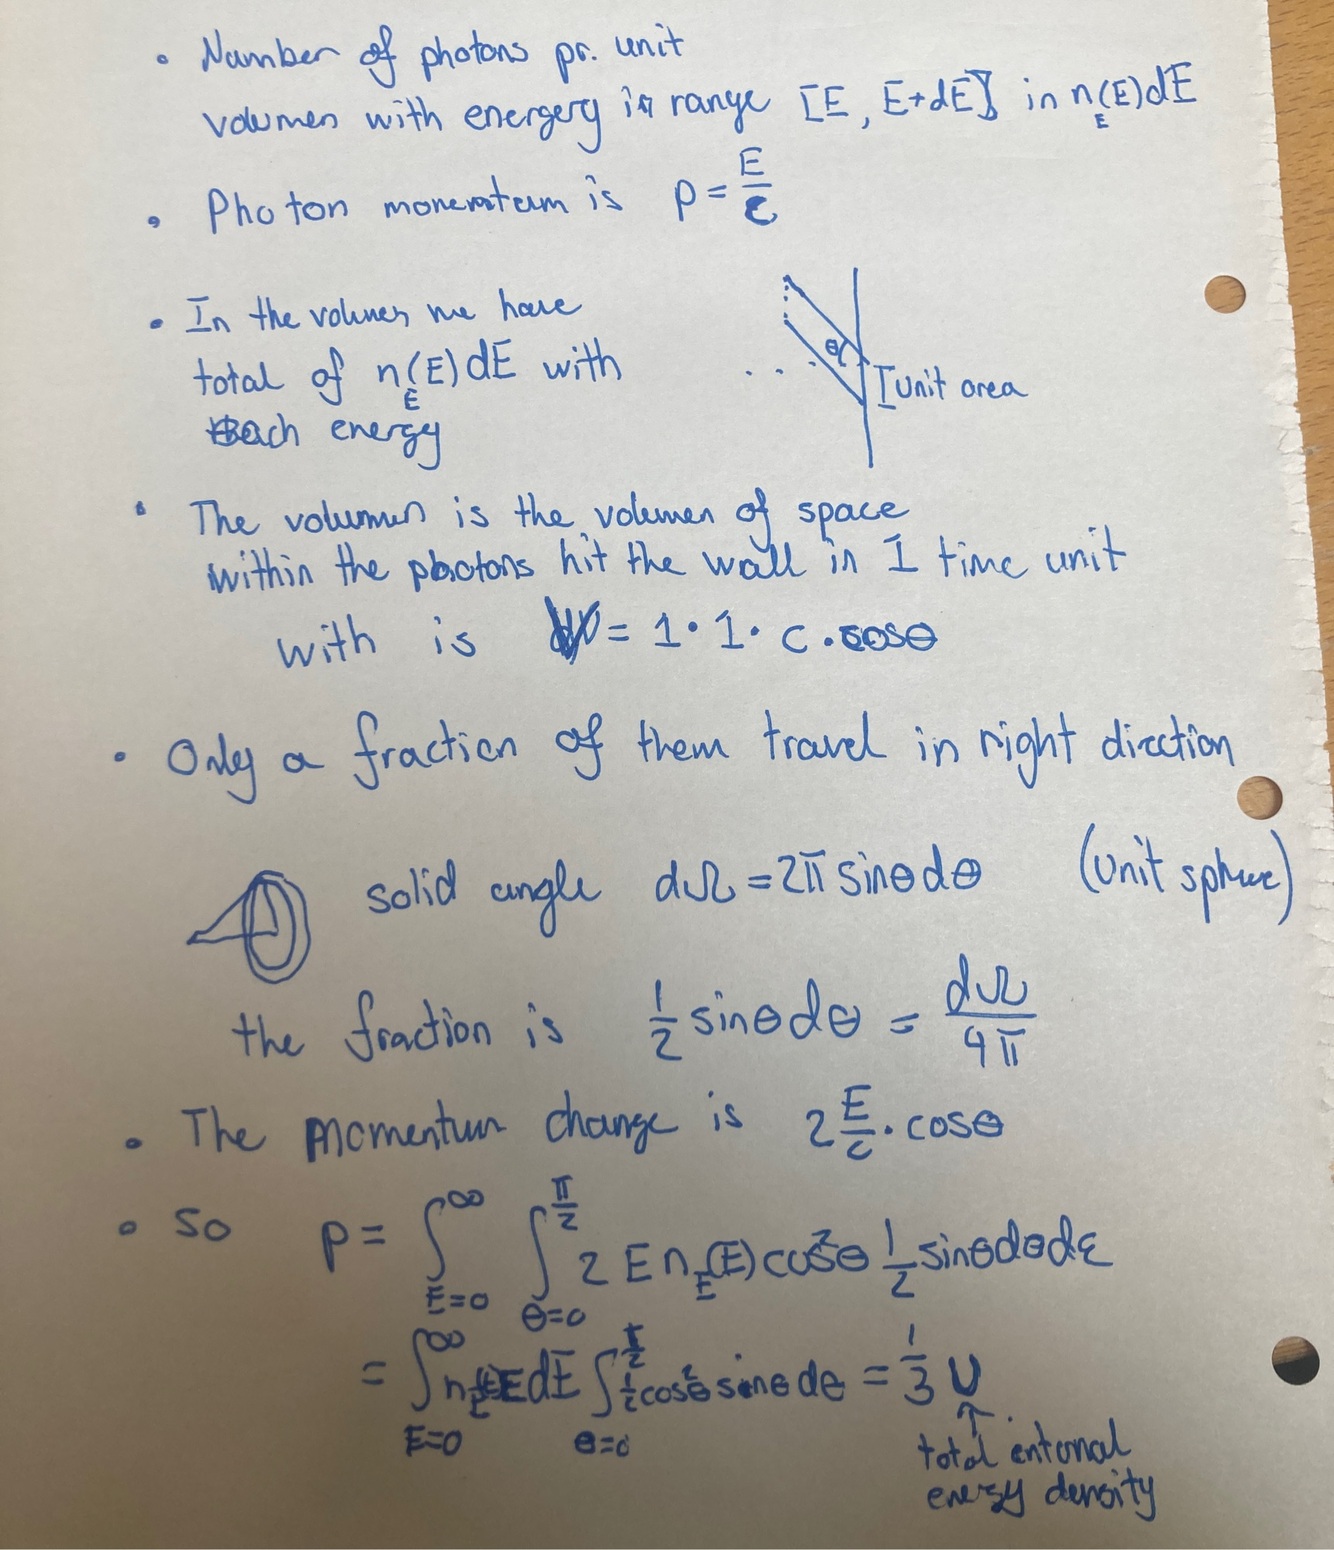 • Number of photons pr. unit
volumen with energery in range [E, E+dE] in n_E(E)dE
• Photon momentum is p = E/c
• In the volumen we have
total of n_E(E)dE with
each energy
θ
I unit area
• The volumen is the volumen of space
within the photons hit the wall in 1 time unit
with is V = 1 · 1 · c · cosθ
• Only a fraction of them travel in right direction
solid angle dΩ = 2π sinθ dθ (unit sphere)
the fraction is 1/2 sinθ dθ = dΩ/4π
• The momentum change is 2 E/c · cosθ
• So p = ∫_{E=0}^{∞} ∫_{θ=0}^{π/2} 2 E n_E(E) cos²θ 1/2 sinθ dθ dE
= ∫_{E=0}^{∞} n_E(E) E dE ∫_{θ=0}^{π/2} 1/2 cos²θ sinθ dθ = 1/3 U
total internal
energy density